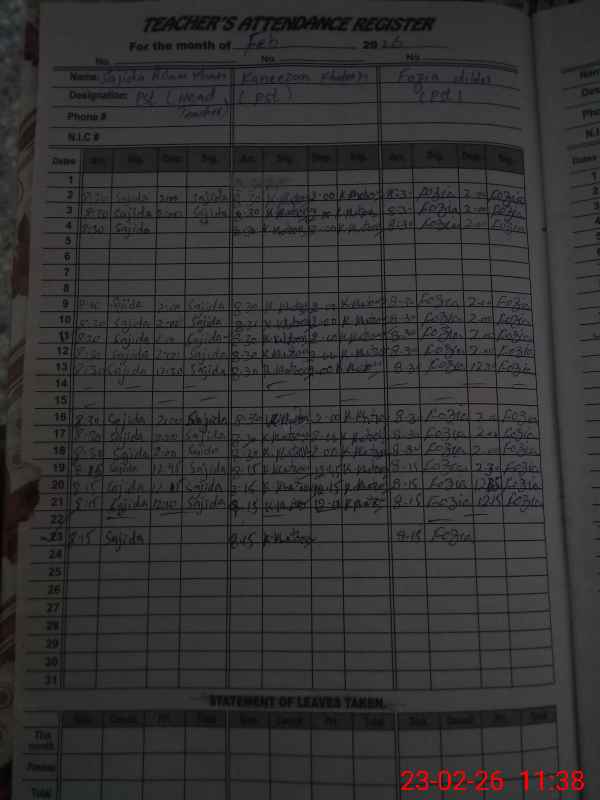 TEACHER'S ATTENDANCE REGISTER
For the month of Feb 2026
No. No. No.
Name: Sajida Khan Kaneezan Khatoon Fozia
Designation: Pst (Head Teacher) (Pst) (Pst)
Phone #
N.I.C #
Dates Arr. Sig. Dep. Sig. Arr. Sig. Dep. Sig. Arr. Sig. Dep. Sig.
1
2 8:30 Sajida 2:00 Sajida 8.30 K.Khatoon 2-00 K.Khatoon 8-30 Fozia 2-00 Fozia
3 8:30 Sajida 2:00 Sajida 8.30 K.Khatoon 2-00 K.Khatoon 8-30 Fozia 2-00 Fozia
4 8:30 Sajida 8.30 K.Khatoon 2-00 K.Khatoon 8-30 Fozia 2-00 Fozia
5
6
7
8
9 8:30 Sajida 2:00 Sajida 8.30 K.Khatoon 2-00 K.Khatoon 8-30 Fozia 2-00 Fozia
10 8:30 Sajida 2:00 Sajida 8.30 K.Khatoon 2-00 K.Khatoon 8-30 Fozia 2-00 Fozia
11 8:30 Sajida 2:00 Sajida 8.30 K.Khatoon 2-00 K.Khatoon 8-30 Fozia 2-00 Fozia
12 8:30 Sajida 2:00 Sajida 8.30 K.Khatoon 2-00 K.Khatoon 8-30 Fozia 2-00 Fozia
13 8:30 Sajida 12:30 Sajida 8.30 K.Khatoon K.Khatoon 8-30 Fozia Fozia
14
15
16 8:30 Sajida 2:00 Sajida 8-30 K.Khatoon 2-00 K.Khatoon 8-30 Fozia 2-00 Fozia
17 8:30 Sajida 2:00 Sajida 8.30 K.Khatoon 2-00 K.Khatoon 8-30 Fozia 2-00 Fozia
18 8:30 Sajida 2:00 Sajida 8.30 K.Khatoon 2-00 K.Khatoon 8-30 Fozia 2-00 Fozia
19 Sajida Sajida 8-15 K.Khatoon K.Khatoon 8-15 Fozia Fozia
20 8:15 Sajida Sajida 8-15 K.Khatoon K.Khatoon 8-15 Fozia Fozia
21 8:15 Sajida Sajida 8-15 K.Khatoon K.Khatoon 8-15 Fozia 1215 Fozia
22
23 8:15 Sajida 8.15 K.Khatoon 8-15 Fozia
24
25
26
27
28
29
30
31
STATEMENT OF LEAVES TAKEN.
Sick Casual Pri. Total Sick Casual Pri. Total Sick Casual Pri. Total
This month
Previous
Total
23-02-26 11:38